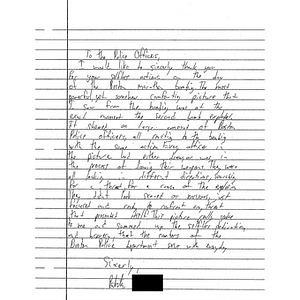 To the Police Officers,
I would like to sincerely thank you
for your selfless actions on the day
of the Boston marathon bombing. The most
powerful, yet somehow comforting picture that
I saw from the bombing was at the
exact moment the second bomb exploded.
It showed a large amount of Boston
Police officers all rushing to the bombing
with the same action. Every officer in
the picture had either drawn or was in
the process of drawing their weapons. They were
all looking in different directions, searching
for a threat or a cause of the explosion.
They didn't look scared or nervous, just
focused and ready to confront any threat
that presented itself. This picture really spoke
to me and summed up the selfless dedication
and bravery that the members of the
Boston Police Department serve with everyday.
Sincerely,